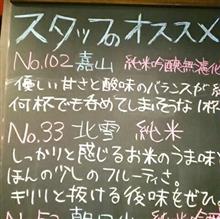 スタッフのオススメ
No.102 嘉山 純米吟醸無濾化
優しい甘さと酸味のバランスが
何杯でも呑めてしまいそうな1杯
No.33 北雪 純米
しっかりと感じるお米のうま味
ほんの少しのフルーティさ。
キリリと抜ける後味をぜひ